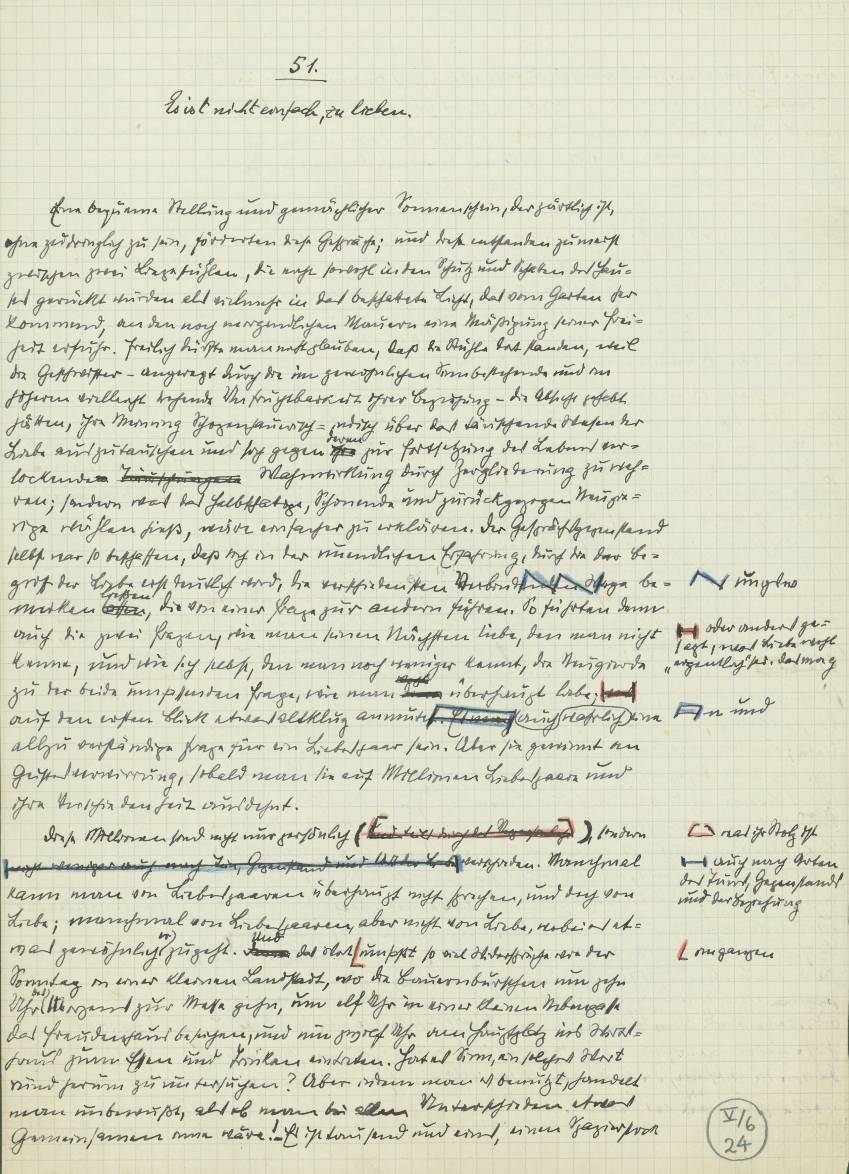 51.
Es ist nicht einfach, zu lieben.
Eine bequeme Stellung und gemächlicher Sonnenschein, der zärtlich ist,
ohne zudringlich zu sein, förderten diese Gespräche; und diese entstanden zumeist
zwischen zwei Liegestühlen, die nicht sowohl in den Schutz und Schatten des Hau-
ses gerückt wurden als vielmehr in das beschattete Licht, das vom Garten her
kommend, an den noch morgendlichen Mauern eine Mäßigung seiner Frei-
heit erfuhr. Freilich dürfte man nicht glauben, daß die Stühle dort standen, weil
die Geschwister – angeregt durch die im gewöhnlichen Sinn bestehende und im
höhern vielleicht drohende Unfruchtbarkeit ihrer Beziehung – die Absicht gehabt
hätten, ihre Meinung Schopenhauerisch-indisch über das täuschende Wesen der
Liebe auszutauschen und sich gegen deren zur Fortsetzung des Lebens ver-
lockende Wahnwirkung durch Zergliederung zu weh-
ren; sondern was das Halbschattige, Schonende und zurückgezogen Neugie-
rige wählen hieß, wäre einfacher zu erklären. Der Gesprächsgegenstand
selbst war so beschaffen, daß sich in der unendlichen Erfahrung, durch die der Be-
griff der Liebe erst deutlich wird, die verschiedensten Verbindungswege be-
merken ließen, die von einer Frage zur andern führen. So führten denn
auch die zwei Fragen, wie man seinen Nächsten liebe, den man nicht
kenne, und wie sich selbst, den man noch weniger kennt, die Neugierde
zu der beide umfassenden Frage, wie man wohl überhaupt liebe;
auf den ersten Blick etwas altklug anmuten auch wahrlich eine
allzu verständige Frage für ein Liebespaar sein. Aber sie gewinnt an
Geistesverwirrung, sobald man sie auf Millionen Liebespaare und
ihre Verschiedenheit ausdehnt.
Diese Millionen sind nicht nur persönlich ( ), sondern
verschieden. Manchmal
kann man von Liebespaaren überhaupt nicht sprechen, und doch von
Liebe; manchmal von Liebespaaren, aber nicht von Liebe, wobei es et-
was gewöhnlicher zugeht. Und das Wort umfaßt so viel Widersprüche wie der
Sonntag in einer kleinen Landstadt, wo die Bauernburschen um zehn
Uhr des Morgens zur Messe gehn, um elf Uhr in einer kleinen Nebengasse
das Freudenhaus besuchen, und um zwölf Uhr am Hauptplatz ins Wirts-
haus zum Essen und Trinken eintreten. Hat es Sinn, ein solches Wort
rund herum zu untersuchen? Aber indem man es benutzt, handelt
man unbewußt, als ob man bei allen Unterschieden etwas
Gemeinsamen inne wäre! Es ist tausend und eins, einen Spazierstock
ungswe
oder anders ge-
sagt, was Liebe wohl
„eigentlich“ sei. Das mag
n und
was ihr Stolz ist
auch nach Arten
des Tuns, Gegenstands
und der Beziehung
im ganzen
V/6
24